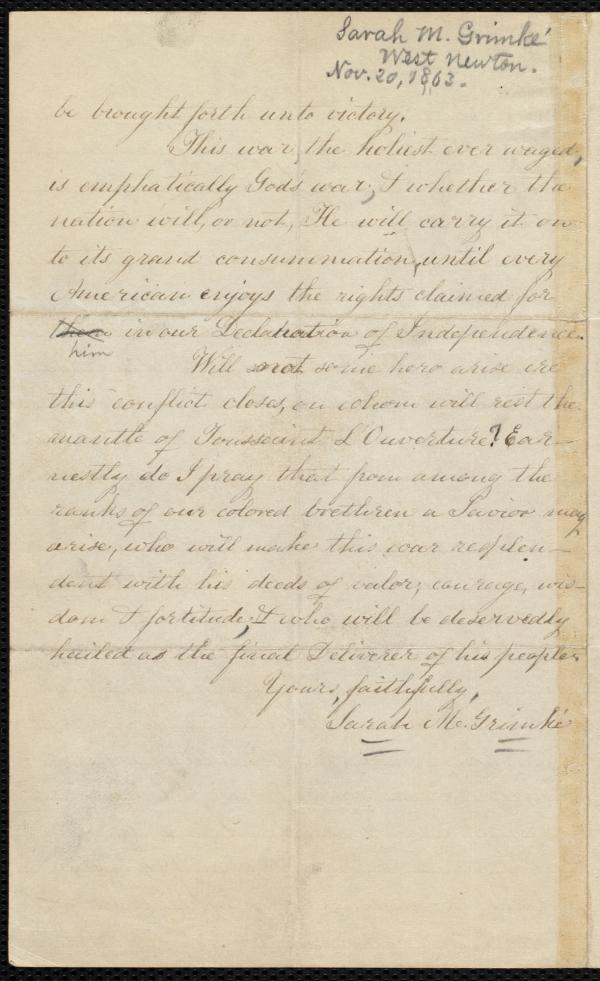 Sarah M. Grimké
West Newton.
Nov. 20, 1863.
be brought forth unto victory.
This war, the holiest ever waged,
is emphatically God's war, & whether the
nation will, or not, He will carry it on
to its grand consummation, until every
American enjoys the rights claimed for
them in our Declaration of Independence.
him
Will not some hero arise ere
this conflict closes, on whom will rest the
mantle of Toussaint L'Ouverture? Ear-
nestly do I pray that from among the
ranks of our colored brethren a Savior may
arise, who will make this war resplen-
dent with his deeds of valor, courage, wis-
dom & fortitude, & who will be deservedly
hailed as the final Deliverer of his people.
Yours, faithfully,
Sarah M. Grimké